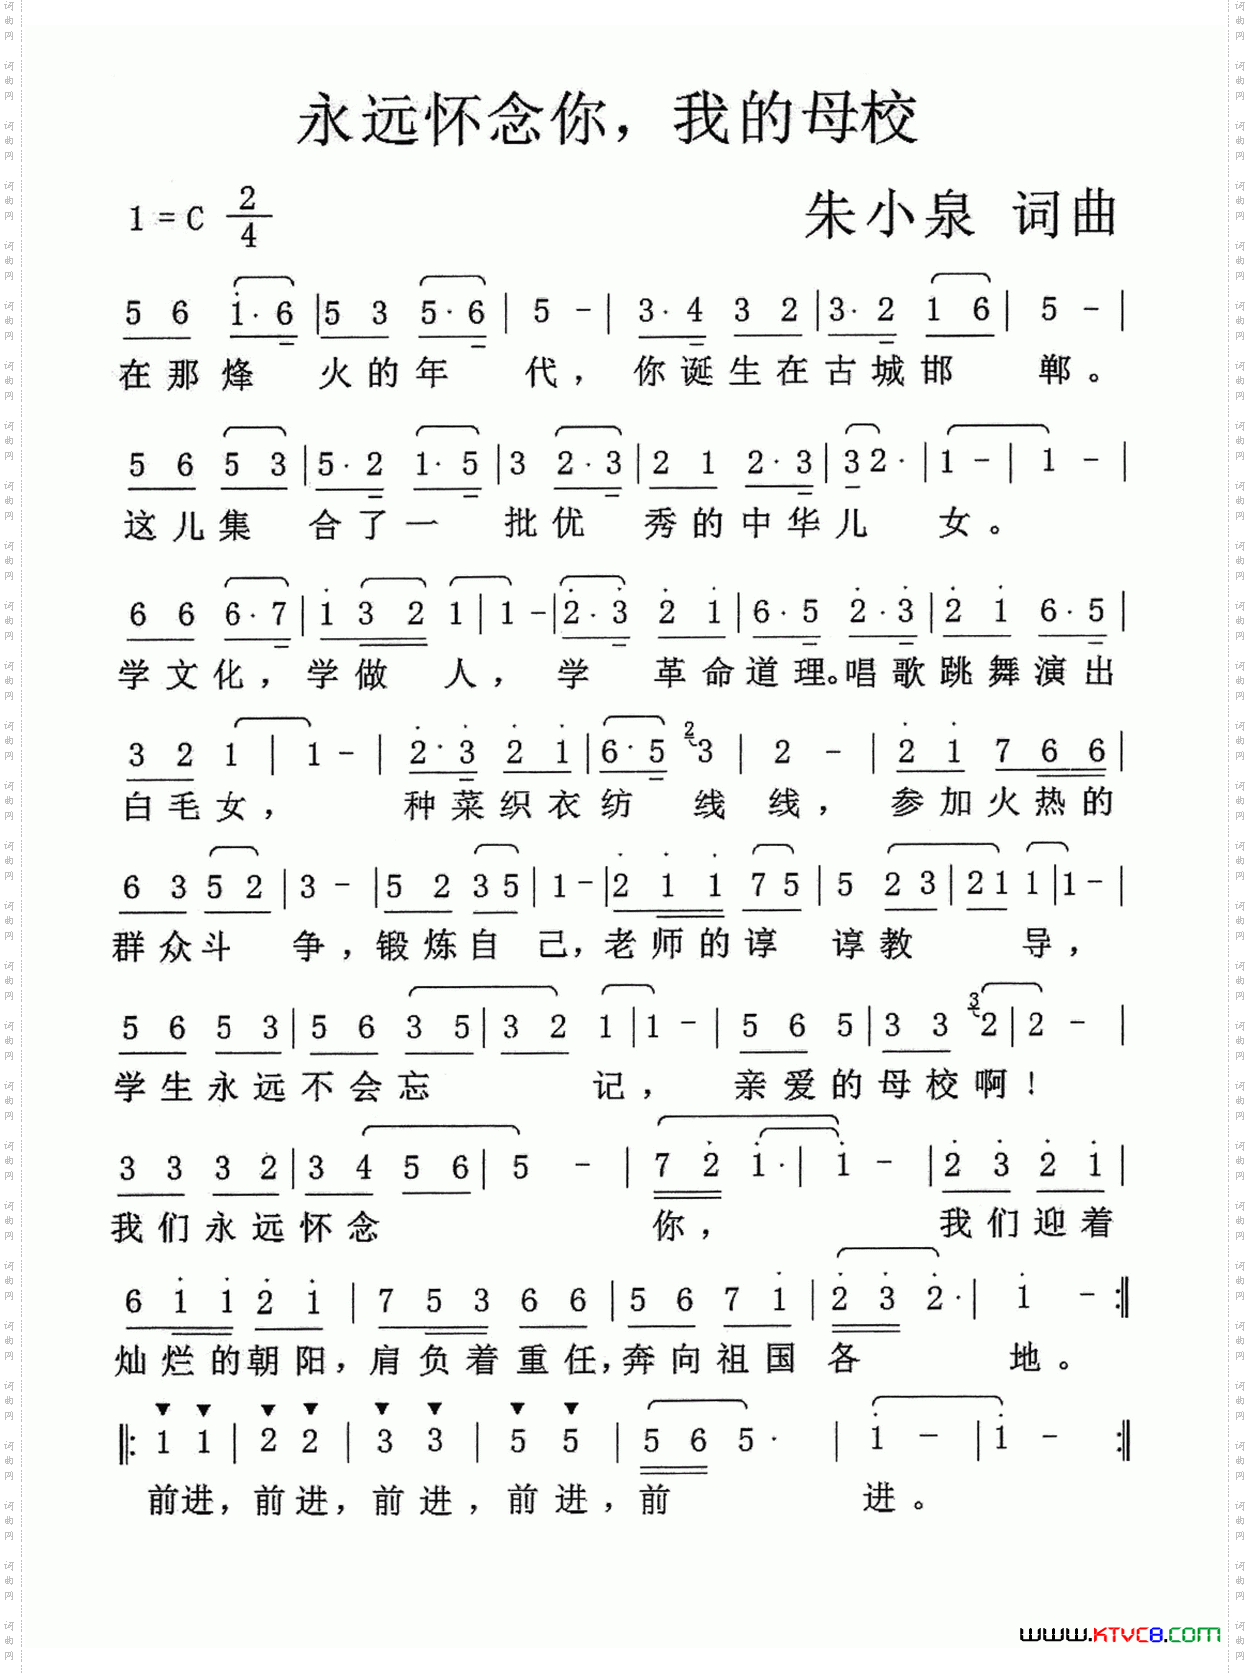 永远怀念你，我的母校
1=C 2/4 朱小泉 词曲
5 6 i·6 | 5 3 5·6 | 5 - | 3·4 3 2 | 3·2 1 6 | 5 - |
在那烽 火的年 代，你诞生在古城邯 郸。
5 6 5 3 | 5·2 1·5 | 3 2·3 | 2 1 2·3 | 3 2· | 1 - | 1 - |
这儿集 合了一 批优 秀的中华儿 女。
6 6 6·7 | i 3 2 1 | 1 - | 2·3 2 i | 6·5 2·3 | 2 i 6·5 |
学文化，学做 人，学 革命道理。唱歌跳舞演出
3 2 1 | 1 - | 2·3 2 i | 6·5 2 3 | 2 - | 2 i 7 6 6 |
白毛女，种菜织衣纺 线线，参加火热的
6 3 5 2 | 3 - | 5 2 3 5 | 1 - | 2 i i 7 5 | 5 2 3 | 2 1 1 | 1 - |
群众斗 争，锻炼自 己，老师的谆 谆教 导，
5 6 5 3 | 5 6 3 5 | 3 2 1 | 1 - | 5 6 5 | 3 3 3 2 | 2 - |
学生永远不会忘 记，亲爱的母校啊！
3 3 3 2 | 3 4 5 6 | 5 - | 7 2 i· | i - | 2 3 2 i |
我们永远怀念 你，我们迎着
6 i i 2 i | 7 5 3 6 6 | 5 6 7 i | 2 3 2· | i - :‖
灿烂的朝阳，肩负着重任，奔向祖国各 地。
▼ ▼ ▼ ▼ ▼ ▼ ▼ ▼
‖: 1 1 | 2 2 | 3 3 | 5 5 | 5 6 5· | i - | i - :‖
前进，前进，前进，前进，前 进。
www.KTVC8.com